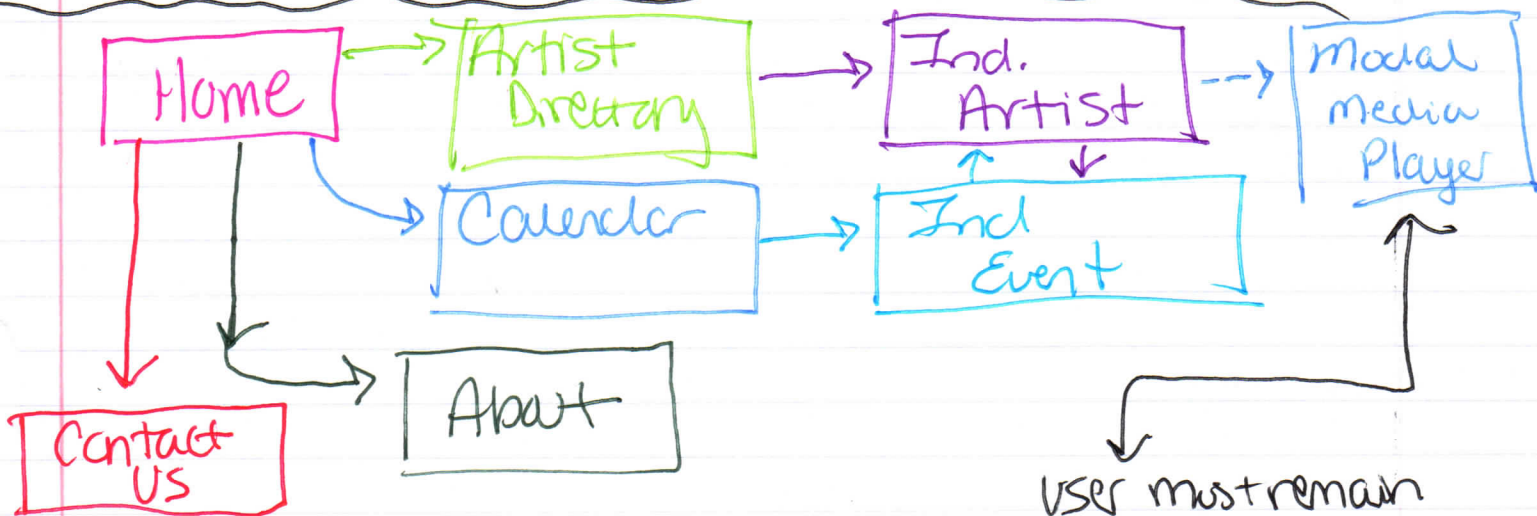 Home
Artist
Directory
Ind.
Artist
Modal
Media
Player
Calendar
Ind
Event
About
Contact
Us
user must remain